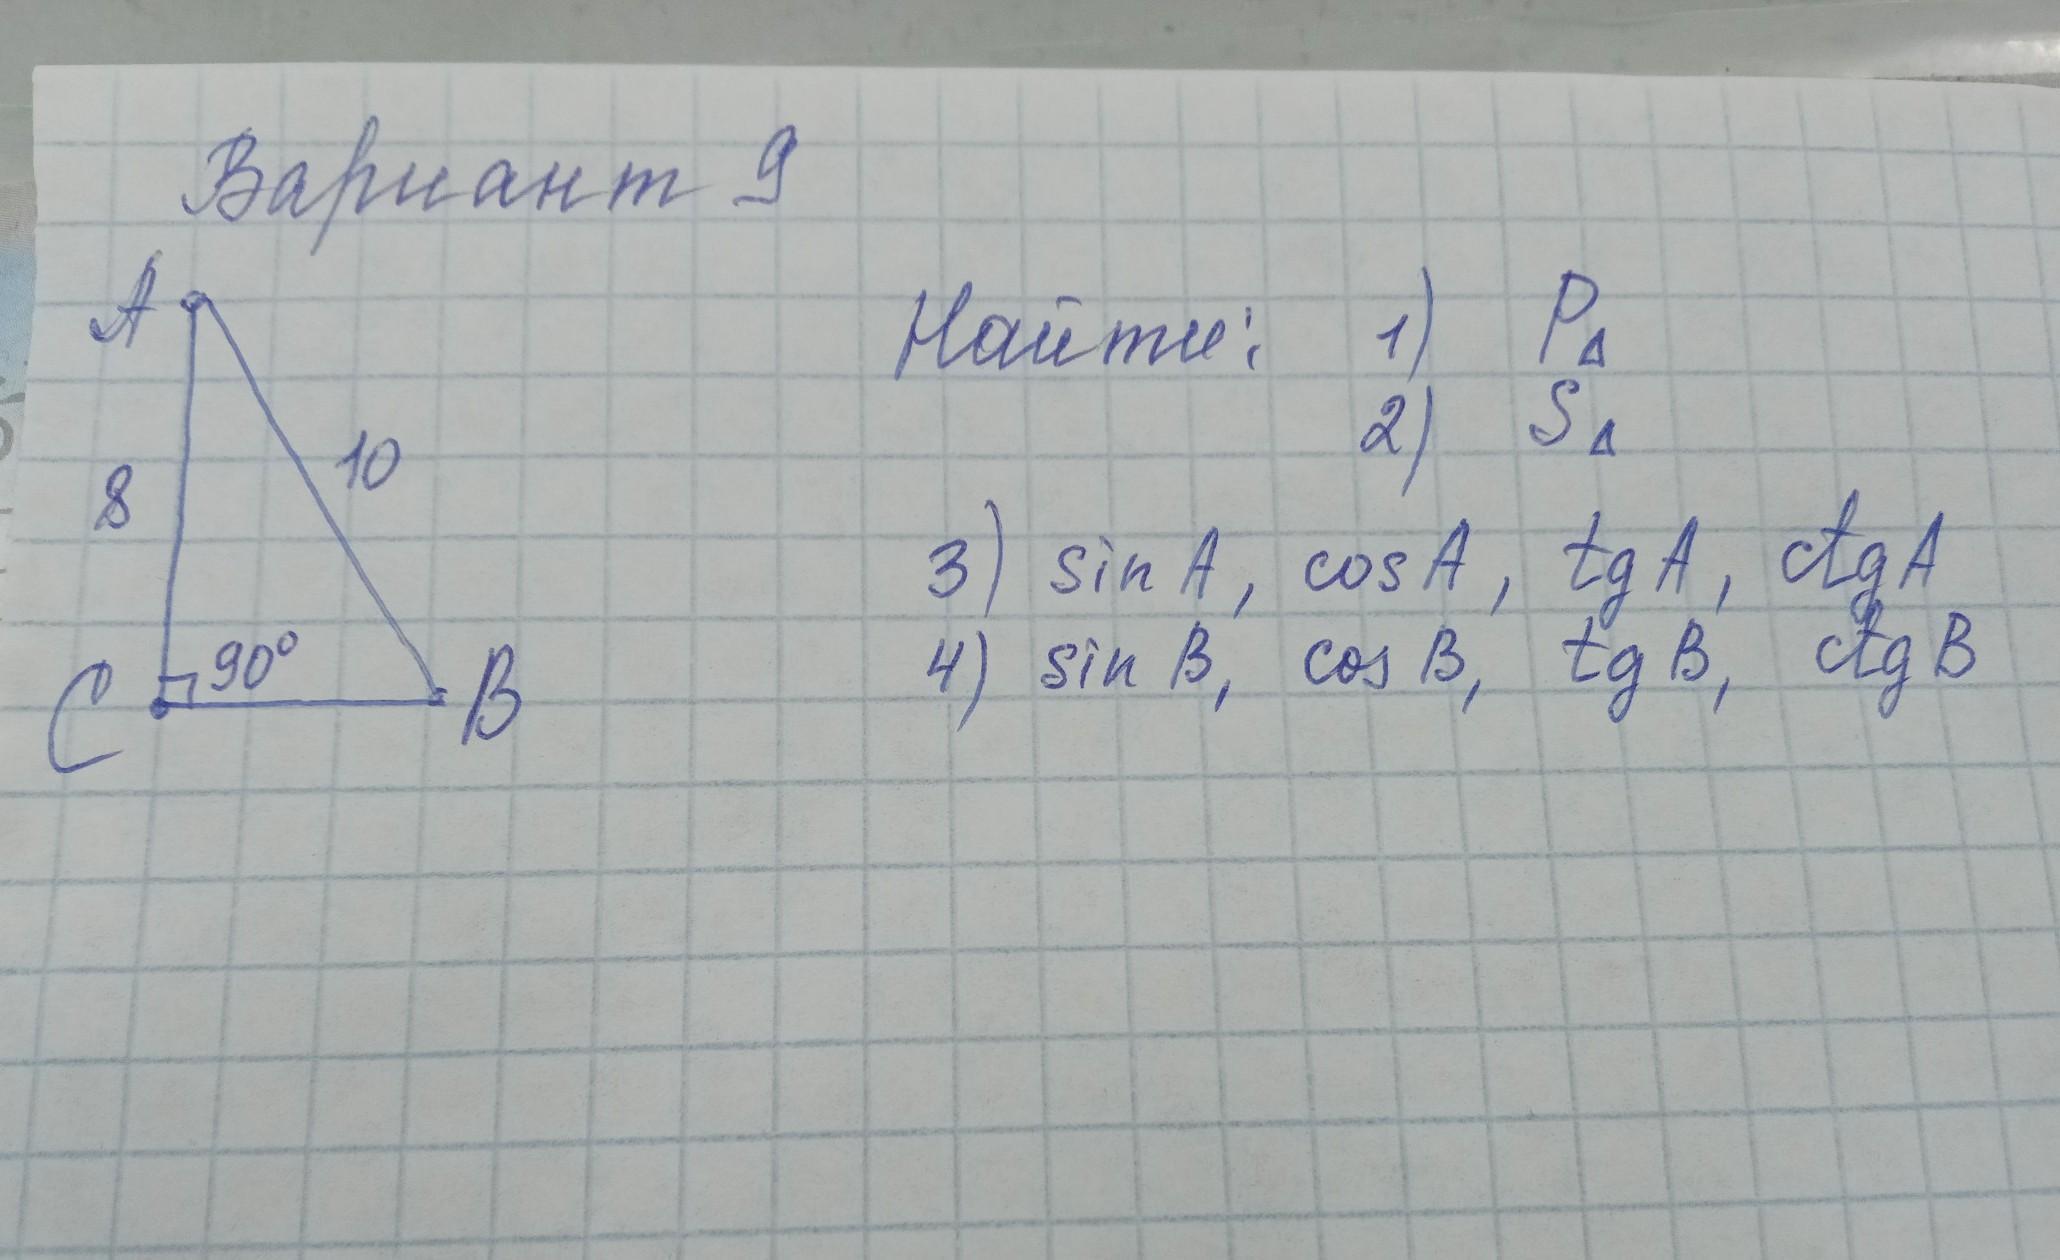 Вариант 9
A
8
10
C
90°
B
Найти: 1) P△
2) S△
3) sin A, cos A, tg A, ctg A
4) sin B, cos B, tg B, ctg B